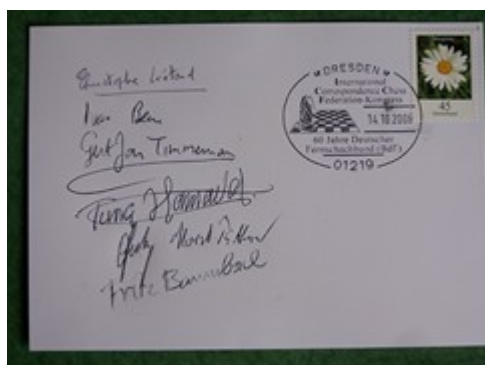 Christophe Léotard
Ivar Bern
Gert Jan Timmerman
Tunç Hamarat
Horst Rittner
Fritz Baumbach
DRESDEN
International
Correspondence Chess
Federation-Kongress
14.10.2006
60 Jahre Deutscher
Fernschachbund (BdF)
01219
45